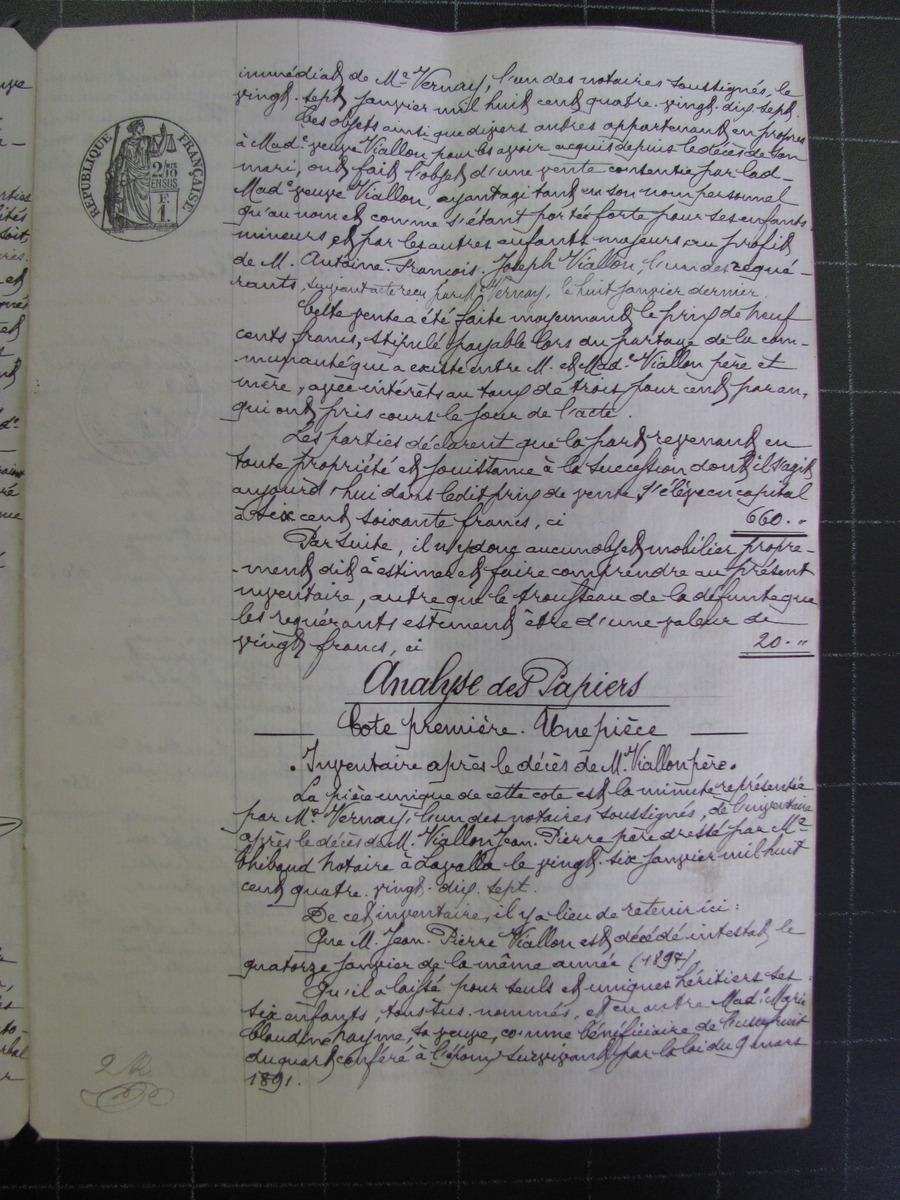 immédiat de Me Vernay, l'un des notaires soussignés, le
vingt-sept janvier mil huit cent quatre-vingt-dix-sept.
Ces objets ainsi que divers autres appartenant en propres
à Made veuve Viallon pour les avoir acquis depuis le décès de son
mari, ont fait l'objet d'une vente consentie par lad.
Made veuve Viallon, ayant agi tant en son nom personnel
qu'au nom et comme s'étant portée forte pour ses enfants
mineurs et par les autres enfants majeurs au profit
de M. Antoine-François-Joseph Viallon, l'un des requé-
rants, suivant acte reçu par Me Vernay, le huit janvier dernier.
Cette vente a été faite moyennant le prix de neuf
cents francs, stipulé payable lors du partage de la com-
munauté qui a existé entre M. et Made Viallon père et
mère, avec intérêts au taux de trois pour cent par an,
qui ont pris cours le jour de l'acte.
Les parties déclarent que la part revenant en
toute propriété et jouissance à la succession dont il s'agit
aujourd'hui dans ledit prix de vente s'élève en capital
à six cent soixante francs, ci 660. "
Par suite, il n'y donc aucun objet mobilier propre-
-ment dit à estimer et faire comprendre au présent
inventaire, autre que le trousseau de la défunte que
les requérants estiment être d'une valeur de
vingt francs, ci 20. "
Analyse des Papiers
Cote première. Une pièce
Inventaire après le décès de M. Viallon père.
La pièce unique de cette cote est la minute représentée
par Me Vernay, l'un des notaires soussignés, de l'inventaire
après le décès de M. Viallon Jean-Pierre père dressé par Me
Thibaud notaire à Lavalla le vingt-six janvier mil huit
cent quatre-vingt-dix-sept.
De cet inventaire, il y a lieu de retenir ici:
Que M. Jean-Pierre Viallon est décédé intestat le
quatorze janvier de la même année (1897)
Qu'il a laissé pour seuls et uniques héritiers ses
six enfants, tous sus-nommés, et en outre Made Marie
Claudine, sa veuve, comme bénéficiaire de l'usufruit
du quart conféré à l'époux survivant par la loi du 9 mars
1891.
RÉPUBLIQUE FRANÇAISE
2/10
EN SUS
F.
1.